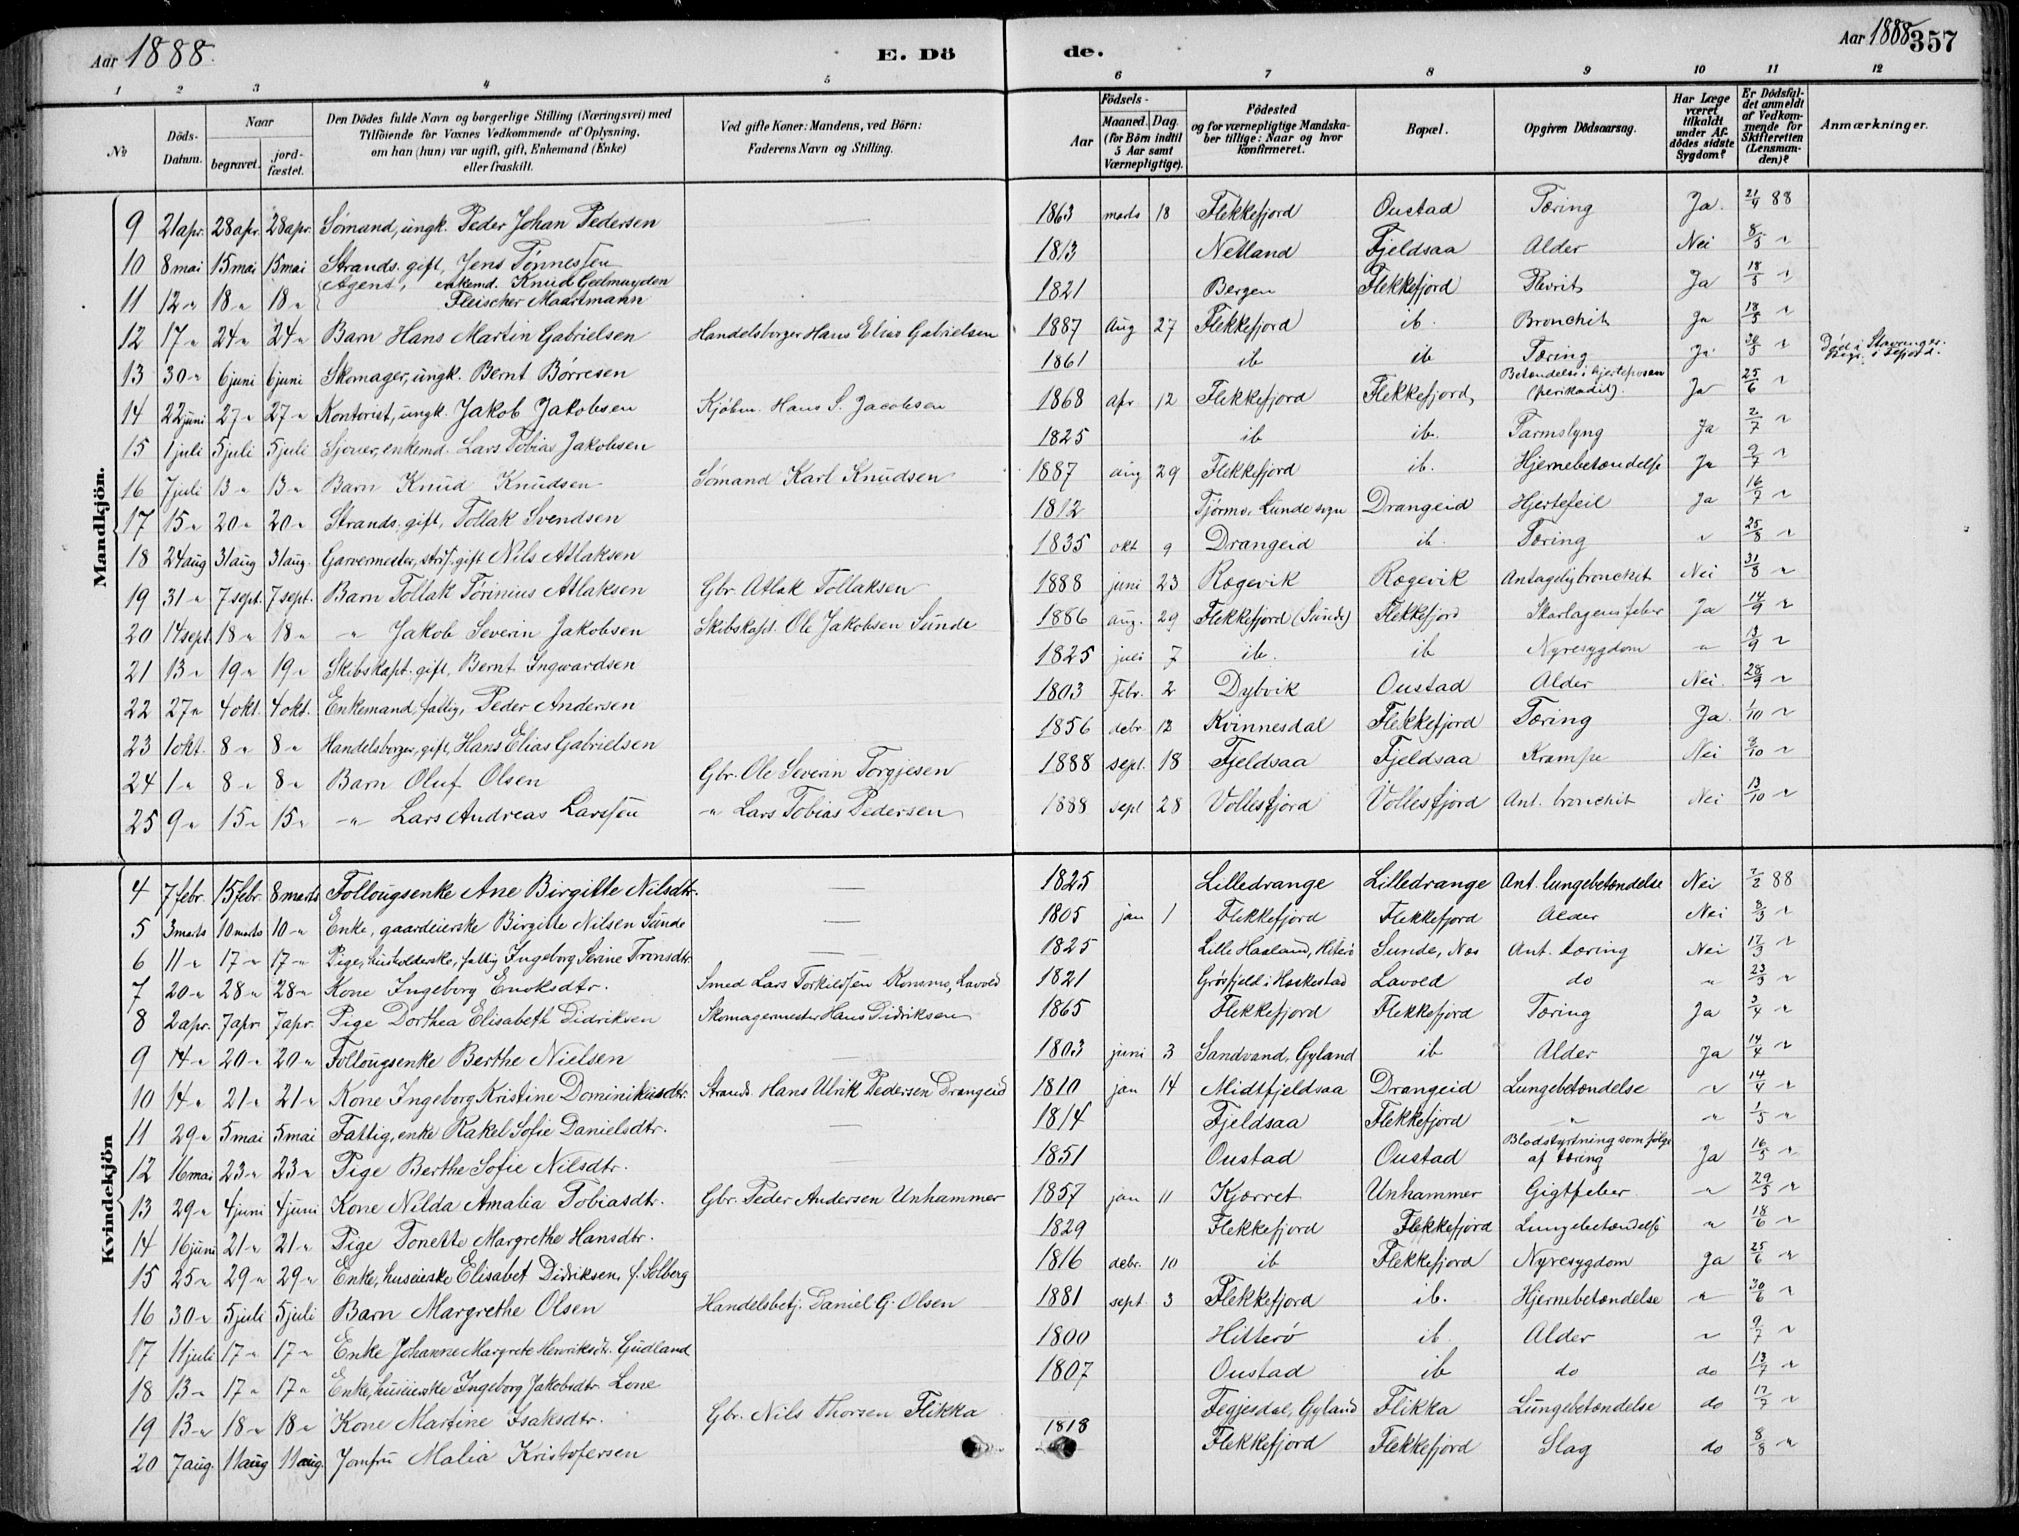 Aar 1888. E. Dö de. Aar 1888 357
1 2 3 4 5 6 7 8 9 10 11 12
№ Döds-Datum. Naar begravet. jordfæstet. Den Dödes fulde Navn og borgerlige Stilling (Næringsvei) med Tilföiende for Voxnes Vedkommende af Oplysning, om han (hun) var ugift, gift, Enkemand (Enke) eller fraskilt. Ved gifte Koner: Mandens, ved Börn: Faderens Navn og Stilling. Födsels- Aar Maaned. Dag. (for Börn indtil 5 Aar samt Værnepligtige). Födested og for værnepligtige Mandskaber tillige: Naar og hvor konfirmeret. Bopæl. Opgiven Dödsaarsag. Har Læge været tilkaldt under Afdödes sidste Sygdom? Er Dödsfaldet anmeldt af Vedkommende for Skifteretten (Lensmanden)? Anmærkninger.
Mandkjön.
9 21 apr. 28 apr. 28 apr. Sömand, ungk. Peder Johan Pedersen — 1863 marts 18 Flekkefjord Oustad Tæring Ja. 21/4 88
10 8 mai 15 mai 15 mai Strands. gift, Jens Tönnessen 1813 Netland Fjeldsaa Alder Nei 8/5 "
11 12 " 18 " 18 " Agent, enkemd. Knud Gedmuyden Fleischer Maartmann 1821 Bergen Flekkefjord Plevrit Ja 18/5 "
12 17 " 24 " 24 " Barn Hans Martin Gabrielsen Handelsborger Hans Elias Gabrielsen 1887 Aug 27 Flekkefjord ib. Bronchit Ja 18/5 "
13 30 " 6 juni 6 juni Skomager, ungk. Bernt Börresen 1861 ib ib Tæring Ja 30/5 " Död i Stavanger.
14 22 juni 27 " 27 " Kontorist, ungk. Jakob Jakobsen Kjöbm. Hans S. Jacobsen 1868 apr. 12 Flekkefjord Flekkefjord Betændelse i hjerteposen (perikadit). Ja 25/6 "
15 1 juli 5 juli 5 juli Sjouer, enkemd. Lars Tobias Jakobsen 1825 ib ib. Tarmslyng Ja 2/7 "
16 7 juli 13 " 13 " Barn Knud Knudsen Sömand Karl Knudsen 1887 aug 29 Flekkefjord ib. Hjernebetændelse Ja 9/7 "
17 15 " 20 " 20 " Strands. gift, Tollak Svendsen 1812 Tjörmo, Lunde sogn Drangeid Hjertefeil Ja 16/7 "
18 24 aug 31 aug 31 aug. Garvermester, strds. gift Nils Atlaksen 1835 okt 9 Drangeid ib. Tæring " 25/8 "
19 31 " 7 sept. 7 sept. Barn Tollak Törinius Atlaksen Gbr. Atlak Tollaksen 1888 juni 23 Rægevik Rægevik Antagelig bronchit Nei 31/8 "
20 14 sept 18 " 18 " " Jakob Severin Jakobsen Skibskapt. Ole Jakobsen Sunde 1886 aug. 29 Flekkefjord (Sunde) Flekkefjord Skarlagensfeber Ja 14/9 "
21 13 " 19 " 19 " Skibskapt. gift, Bernt Ingwardsen 1825 juli 7 ib. ib Nyresygdom " 13/9 "
22 27 " 4 okt. 4 okt. Enkemand, fattig, Peder Andersen 1803 Febr. 2 Dybvik Oustad Alder Nei. 28/9 "
23 1 okt. 8 " 8 " Handelsborger, gift, Hans Elias Gabrielsen 1856 debr. 12 Kvinnesdal Flekkefjord Tæring Ja. 1/10 "
24 1 " 8 " 8 " Barn Oluf Olsen Gbr. Ole Severin Torgjesen 1888 sept. 18 Fjeldsaa Fjeldsaa Krampe Nei 9/10 "
25 9 " 15 " 15 " " Lars Andreas Larssen " Lars Tobias Pedersen 1888 sept 28 Vollesfjord Vollesfjord Ant. bronchit Nei 13/10 "
Kvindekjön
4 7 febr. 15 febr. 8 marts Follougsenke Ane Birgitte Nilsdtr. — 1825 Lilledrange Lilledrange Ant. lungebetændelse Nei 7/2 88
5 3 marts 10 marts 10 " Enke, gaardeierske Birgitte Nilsen Sunde — 1805 jan 1 Flekkefjord Flekkefjord Alder Nei 3/3 "
6 11 " 17 " 17 " Pige, husholderske, fattig Ingeborg Serine Tronsdtr. — 1825 Lille Haaland, Hitterö Sunde, Næs Ant. tæring Nei 17/3 "
7 20 " 28 " 28 " Kone Ingeborg Enoksdtr. Smed Lars Torkildsen Konsmo, Lavold 1821 Grösfjeld i Heskestad Lavold do " 23/3 "
8 2 apr. 7 apr 7 apr. Pige Dorthea Elisabeth Didriksen Skomagermester Hans Didriksen 1865 Flekkefjord Flekkefjord Tæring Ja 3/4 "
9 14 " 20 " 20 " Follougsenke Berthe Nielsen — 1803 juni 3 Sandvand, Gyland ib Alder Ja 14/4 "
10 14 " 21 " 21 " Kone Ingeborg Kristine Dominikusdtr. Strands. Hans Ulrik Pedersen Drangeid 1810 jan 14 Midtfjeldsaa Drangeid Lungebetændelse " 14/4 "
11 29 " 5 mai 5 mai Fattig, enke Rakel Sofie Danielsdtr. — 1814 Fjeldsaa Flekkefjord " " 1/5 "
12 16 mai 23 " 23 " Pige Berthe Sofie Nilsdtr. — 1851 Oustad Oustad Blodstyrtning som følge af tæring Ja 16/5 "
13 29 " 4 juni 4 juni Kone Nilda Amalia Tobiasdtr. Gbr. Peder Andersen Unhammer 1857 jan 11 Kjærret Unhammer Gigtfeber " 29/5 "
14 16 juni 21 " 21 " Pige Tonette Margrethe Hansdtr. 1829 Flekkefjord Flekkefjord Lungebetændelse " 18/6 "
15 25 " 29 " 29 " Enke, huseierske Elisabet Didriksen, f. Solberg 1816 debr. 10 ib Flekkefjord Nyresygdom Ja 25/6 "
16 30 " 5 juli 5 juli Barn Margrethe Olsen Handelsbetj. Daniel G. Olsen 1881 sept 3 Flekkefjord ib. Hjernebetændelse " 30/6 "
17 11 juli 17 " 17 " Enke Johanne Margrete Henriksdtr. Gudland 1800 Hitterö ib. Alder " 9/7 "
18 13 " 17 " 17 " Enke, huseierske Ingeborg Jakobsdtr. Lone 1807 Oustad ib do do 13/7 "
19 13 " 18 " 18 " Kone Martine Isaksdtr. Gbr. Nils Thorsen Flikka 1818 Fegjesdal, Gyland Flikka Lungebetændelse do 17/7 "
20 7 aug. 11 aug 11 aug. Jomfru Malia Kristofersen Flekkefjord Flekkefjord Slag do 8/8 "